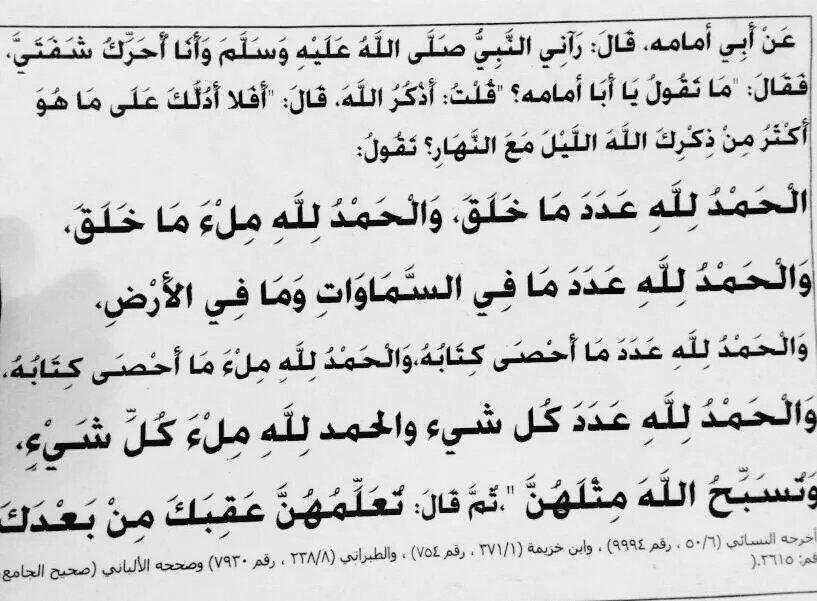 عَنْ أَبِي أمامه، قَالَ: رَآنِي النَّبِيُّ صَلَّى اللَّهُ عَلَيْهِ وَسَلَّمَ وَأَنَا أُحَرِّكُ شَفَتَيَّ،
فَقَالَ: "مَا تَقُولُ يَا أَبَا أمامه؟ "قُلْتُ: أَذْكُرُ اللَّهَ، قَالَ: "أَفَلا أَدُلُّكَ عَلَى مَا هُوَ
أَكْثَرُ مِنْ ذِكْرِكَ اللَّهَ اللَّيْلَ مَعَ النَّهَارِ؟ تَقُولُ:
الْحَمْدُ لِلَّهِ عَدَدَ مَا خَلَقَ، وَالْحَمْدُ لِلَّهِ مِلْءَ مَا خَلَقَ،
وَالْحَمْدُ لِلَّهِ عَدَدَ مَا فِي السَّمَاوَاتِ وَمَا فِي الأَرْضِ،
وَالْحَمْدُ لِلَّهِ عَدَدَ مَا أَحْصَى كِتَابُهُ،وَالْحَمْدُ لِلَّهِ مِلْءَ مَا أَحْصَى كِتَابُهُ،
وَالْحَمْدُ لِلَّهِ عَدَدَ كُل شيء والحمد لِلَّهِ مِلْءَ كُلِّ شَيْءٍ،
وَتُسَبِّحُ اللَّهَ مِثْلَهُنَّ "،ثُمَّ قَالَ: تُعَلِّمُهُنَّ عَقِبَكَ مِنْ بَعْدَكَ
أخرجه النسائي (٥٠/٦ ، رقم ٩٩٩٤) ، وابن خزيمة (٣٧١/١ ، رقم ٧٥٤) ، والطبراني (٢٣٨/٨ ، رقم ٧٩٣٠) وصححه الألباني (صحيح الجامع
قم: ٢٦١٥.(